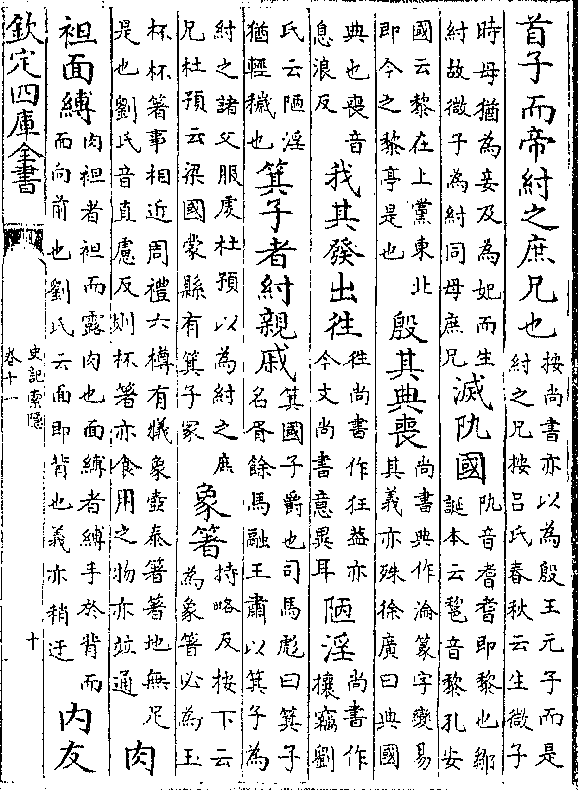 首子而帝紂之庶兄也
按尚書亦以為殷王元子而是
紂之兄按吕氏春秋云生微子
時母猶為妾及為妃而生
紂故微子為紂同母庶兄
滅阢國
阢音耆耆即黎也鄒
誕本云䵩音黎孔安
國云黎在上黨東北
即今之黎亭是也
殷其典喪
尚書典作淪篆字變易
其義亦殊徐廣曰典國
典也喪音
息浪反
我其發出往
徃尚書作狂葢亦
今文尚書意異耳
陋淫
尚書作
攘竊劉
氏云陋淫
猶輕穢也
箕子者紂親戚
箕國子爵也司馬彪曰箕子
名胥餘馬融王肅以箕子為
紂之諸父服䖍杜預以為紂之庶
兄杜預云梁國蒙縣有箕子冢
象箸
持略反按下云
為象箸必為玉
杯杯箸事相近周禮六樽有犧象壺泰箸箸地無足
是也劉氏音直慮反則杯箸亦食用之物亦並通
肉
袒面縛
肉袒者袒而露肉也面縛者縛手於背而
而向前也劉氏云面即背也義亦稍迂
内友
欽定四庫全書
史記索隱
卷十一
十